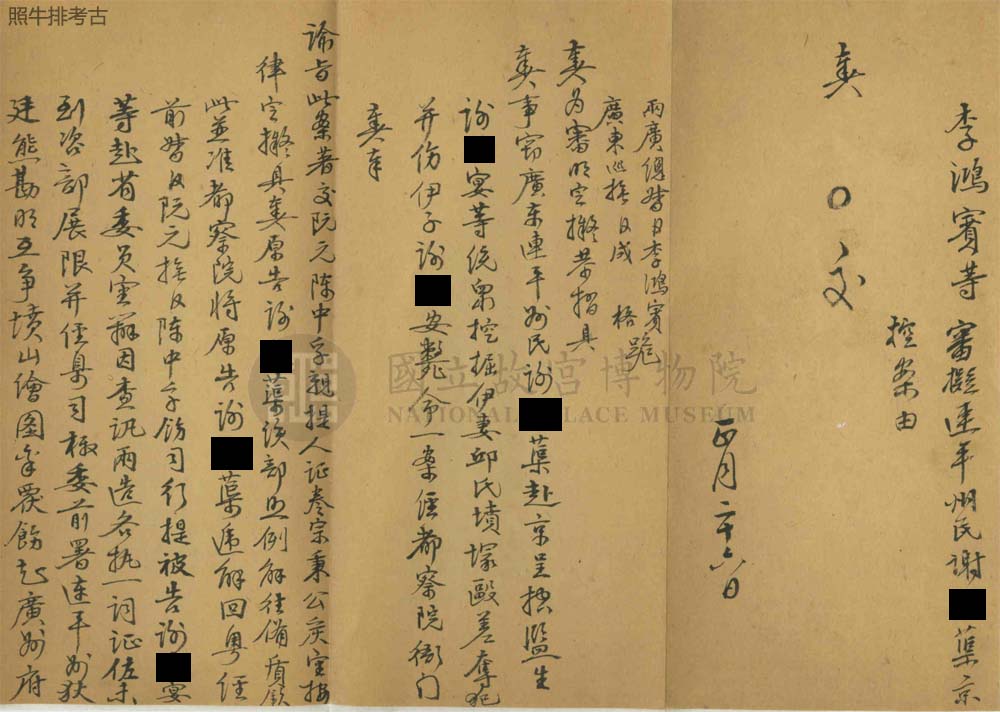 照牛排考古
李鴻賓等 審擬連平州民謝 蕖京
控案由
奏 〇 交
正月二十六日
兩廣總督臣李鴻賓跪
廣東巡撫臣成 格
奏為審明定擬恭摺具
奏事竊廣東連平州民謝 蕖赴京呈控監生
謝 宴等統衆挖掘伊妻邱氏墳塚毆差奪犯
并傷伊子謝 安斃命一案經都察院衙门
奏奉
諭旨此案著交阮元陈中孚親提人证卷宗秉公嚴審按
律定擬具奏原告謝 蕖該部照例解往備質欽
此並准都察院將原告謝 蕖递解回粤经
前督臣阮元撫臣陈中孚飭司行提被告謝 宴
等赴省委员審辦因查訊兩造各执一詞证佐未
到咨部展限并经臬司檄委前署连平州狄
廷熊勘明互争墳山繪图 飭起廣州府
國立故宮博物院
NATIONAL PALACE MUSEUM